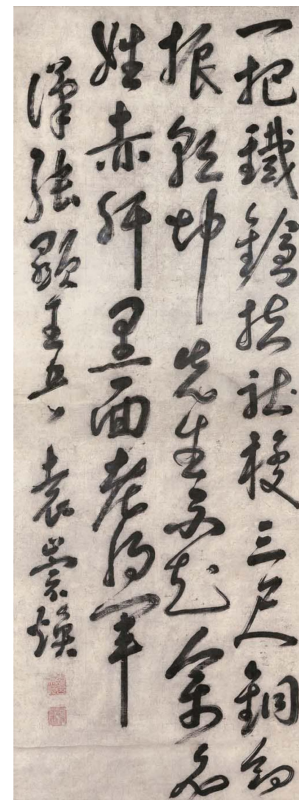 一把鐵鎗扶社稷三尺銅劍
振乾坤先生余名
姓赤肝黑面老將軍
漢張顯王 袁崇煥